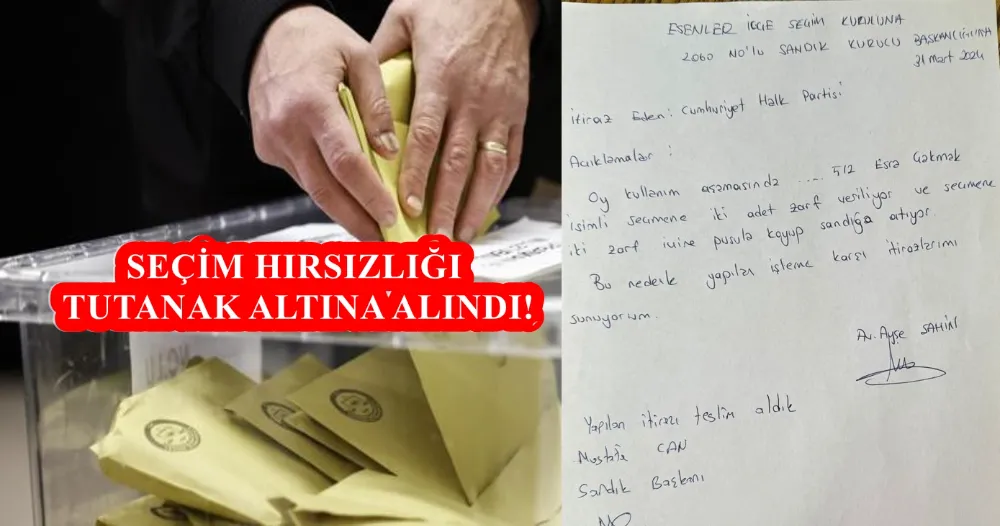 SEÇİM HIRSIZLIĞI
TUTANAK ALTINA ALINDI!
ESENLER İLÇE SEÇİM KURULUNA
2060 NO'LU SANDIK KURULU BAŞKANLIĞI'NA
31 Mart 2024
İtiraz Eden: Cumhuriyet Halk Partisi
Açıklamalar :
Oy kullanım aşamasında ..... 512 Esra Gökmek
isimli seçmene iki adet zarf veriliyor ve seçmene
iki zarf içine pusula koyup sandığa atıyor.
Bu nedenle yapılan işleme karşı itirazlarımı
sunuyorum.
Av. Ayşe ŞAHİN
Yapılan itirazı teslim aldık
Mustafa CAN
Sandık Başkanı